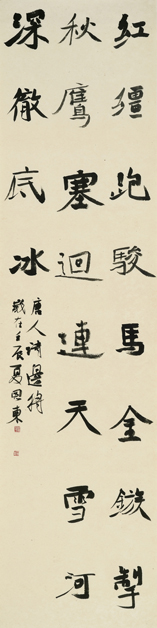 紅繮跑駿馬金鏃掣
秋鷹塞迴連天雪河
深徹底冰
唐人詩邊將
歲在壬辰夏国東